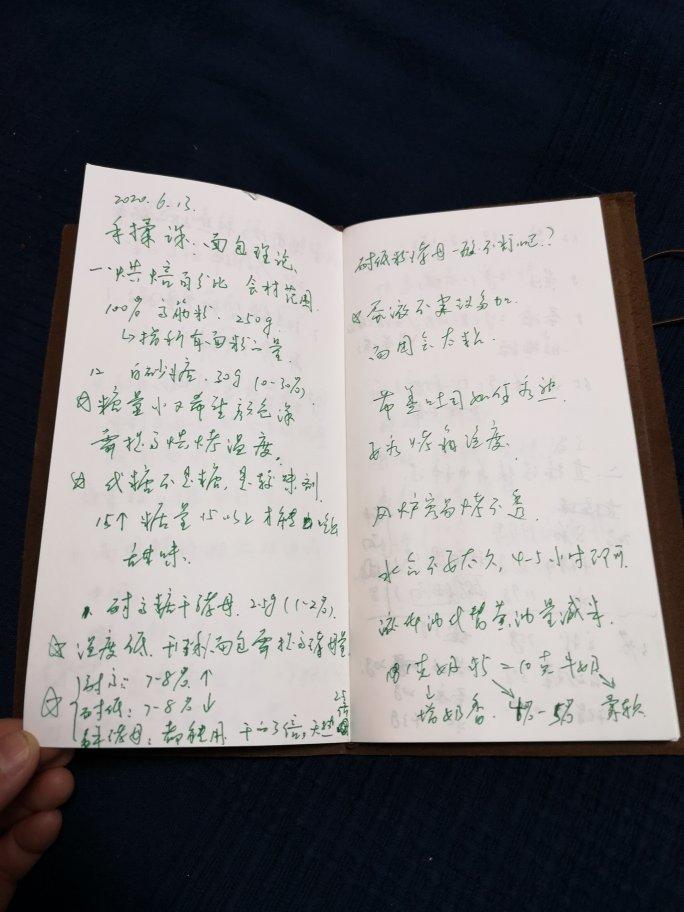 2020.6.13.
手揉课. 面包理论.
一.烘焙百分比 食材范围.
100% 高筋粉. 250g.
↳指所有面粉之量.
12 白砂糖. 30g (0-30%)
☆糖量少不带生颜色深
需提高烘烤温度.
☆ 代糖不是糖,是甜味剂.
15个 糖量15以上才能吃出
甜味.
耐高糖干酵母. 2.5g (1-2%).
☆ 温度低. 面包需提高酵母量
☆ 耐高: 7-8%↑
耐低: 7-8%↓
鲜酵母: 都能用. 干的3倍, 天
耐低糖酵母一般不打吧?
☆ 蛋液不建议多加.
面团会太粘.
带盖吐司如何
要 烤箱温度.
风炉容易烤不透.
水合不要太久, 4-5小时即可.
液体油代替黄油量减半.
1克奶粉=10克牛奶
↓增奶香. 4%-5% 柔软